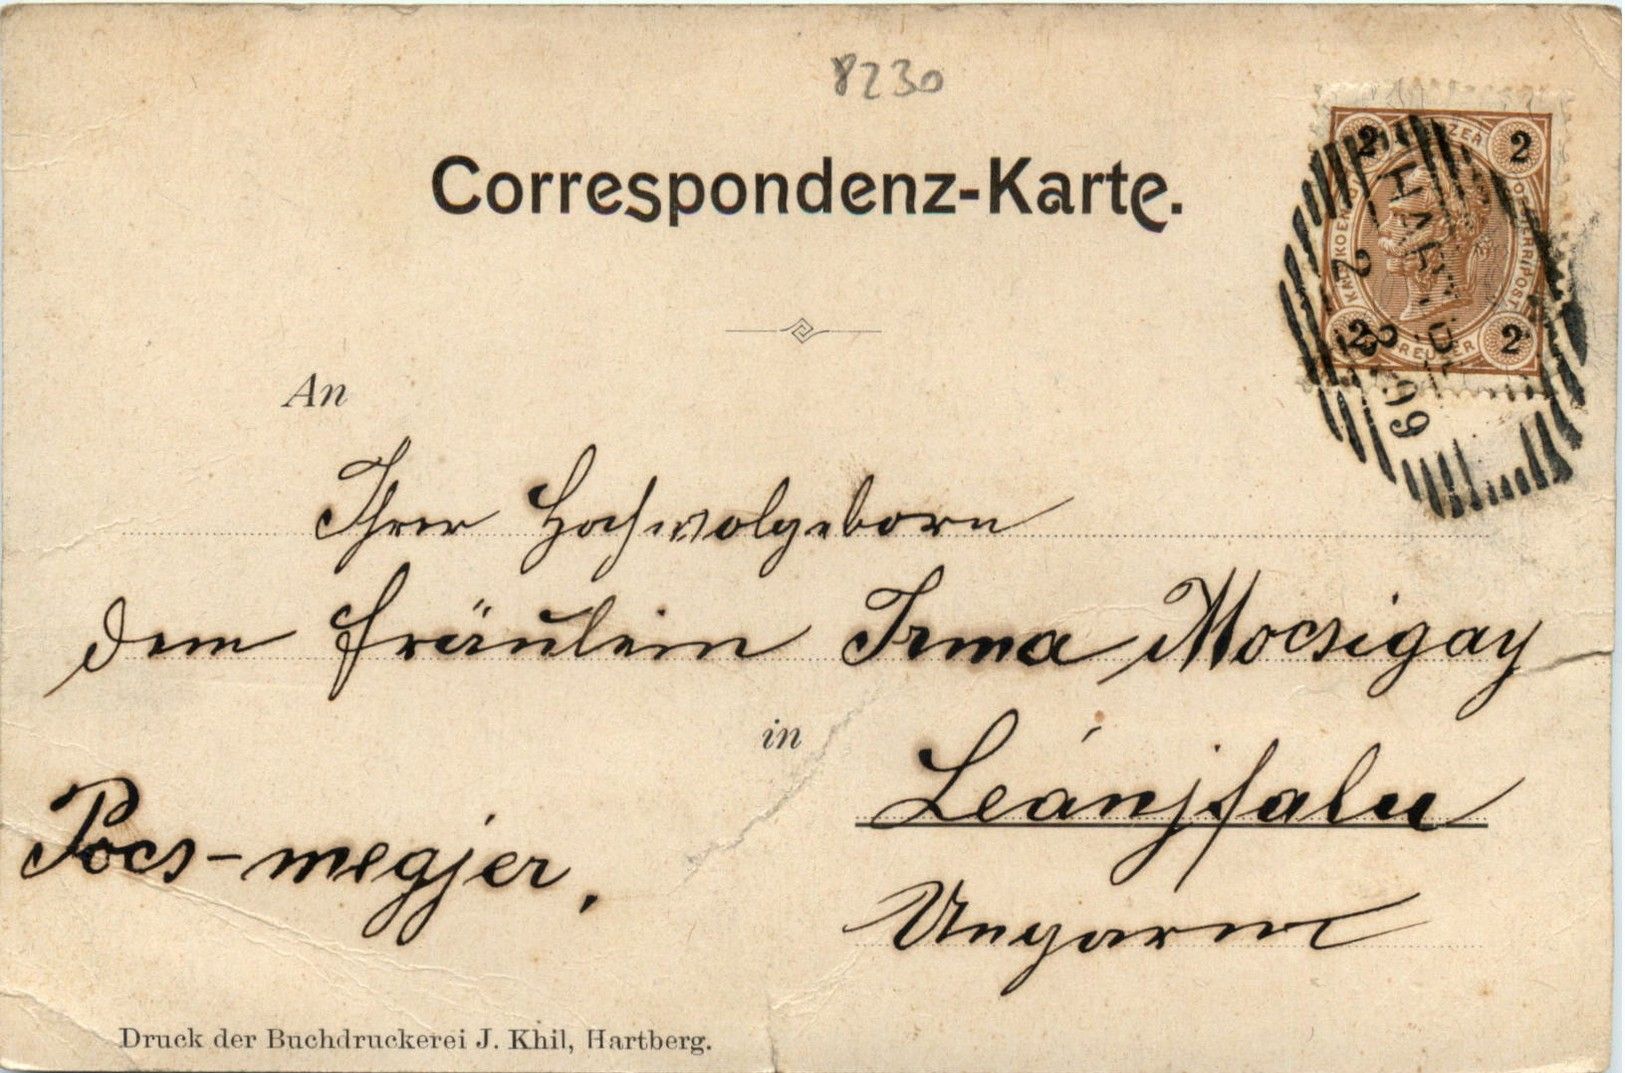 8230
Correspondenz-Karte.
2 2
2 2
HARTB
2 8 99
An
Ihrer Hochwolgeborn
dem Fräulein Irma Mocsigay
in Leánjfalu
Pócs-megjer,
Ungarn
Druck der Buchdruckerei J. Khil, Hartberg.